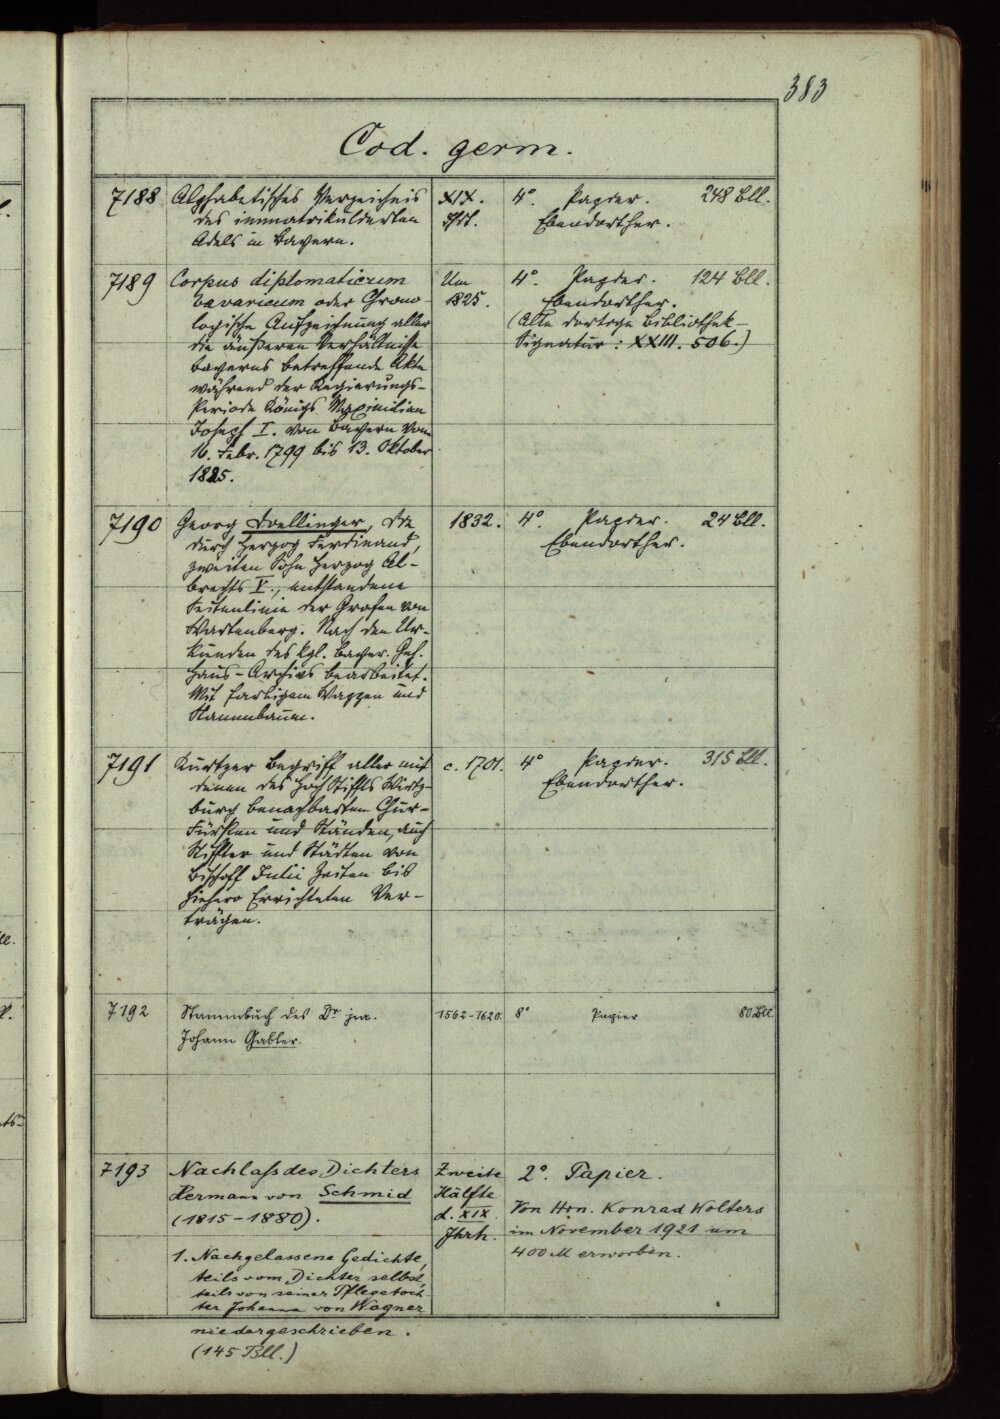 383
Cod. germ.
7188 Alphabetisches Verzeichnis XIX. 4°. Papier. 248 Bll.
des immatrikulierten Jhh. Ebendorther.
Adels in Bayern.
7189 Corpus diplomaticum Um 4°. Papier. 124 Bll.
bavaricum oder Chrono- 1825. Ebendorther.
logische Aufzeichnung aller (Alte dortige Bibliothek-
die äußeren Verhältnisse Signatur: XXIII. 506.)
Bayerns betreffende Akte
während der Regierungs-
Periode Königs Maximilian
Joseph I. von Bayern vom
16. Febr. 1799 bis 13. Oktober
1825.
7190 Georg Doellinger, Die 1832. 4°. Papier. 24 Bll.
durch Herzog Ferdinand, Ebendorther.
zweiten Sohn Herzog Al-
brechts V., entstandene
Seitenlinie der Grafen von
Wartenberg. Nach den Ur-
kunden des kgl. bayer. Geh.
Haus-Archivs bearbeitet.
Mit farbigem Wappen und
Stammbaum.
7191 Kurtzer Begriff aller mit c. 1701. 4° Papier. 315 Bll.
denen des Hoch Stiffts Wirtz- Ebendorther.
burg benachbarten Chur-
Fürsten und Ständen, auch
Stiffter und Städten von
Bischoff Julii Zeiten bis
hiehero Errichteten Ver-
trägen.
7192 Stammbuch des Dr jur. 1562-1620. 8° Papier 80 Bll.
Johann Gabler.
7193 Nachlaß des Dichters Zweite 2°. Papier.
Hermann von Schmid Hälfte Von Hrn. Konrad Wolters
(1815-1880). d. XIX. im November 1921 um
Jhrh. 400 M erworben.
1. Nachgelassene Gedichte,
teils vom Dichter selbst,
teils von seiner Pflegetoch
ter Johanna von Wagner
niedergeschrieben.
(145 Bll.)